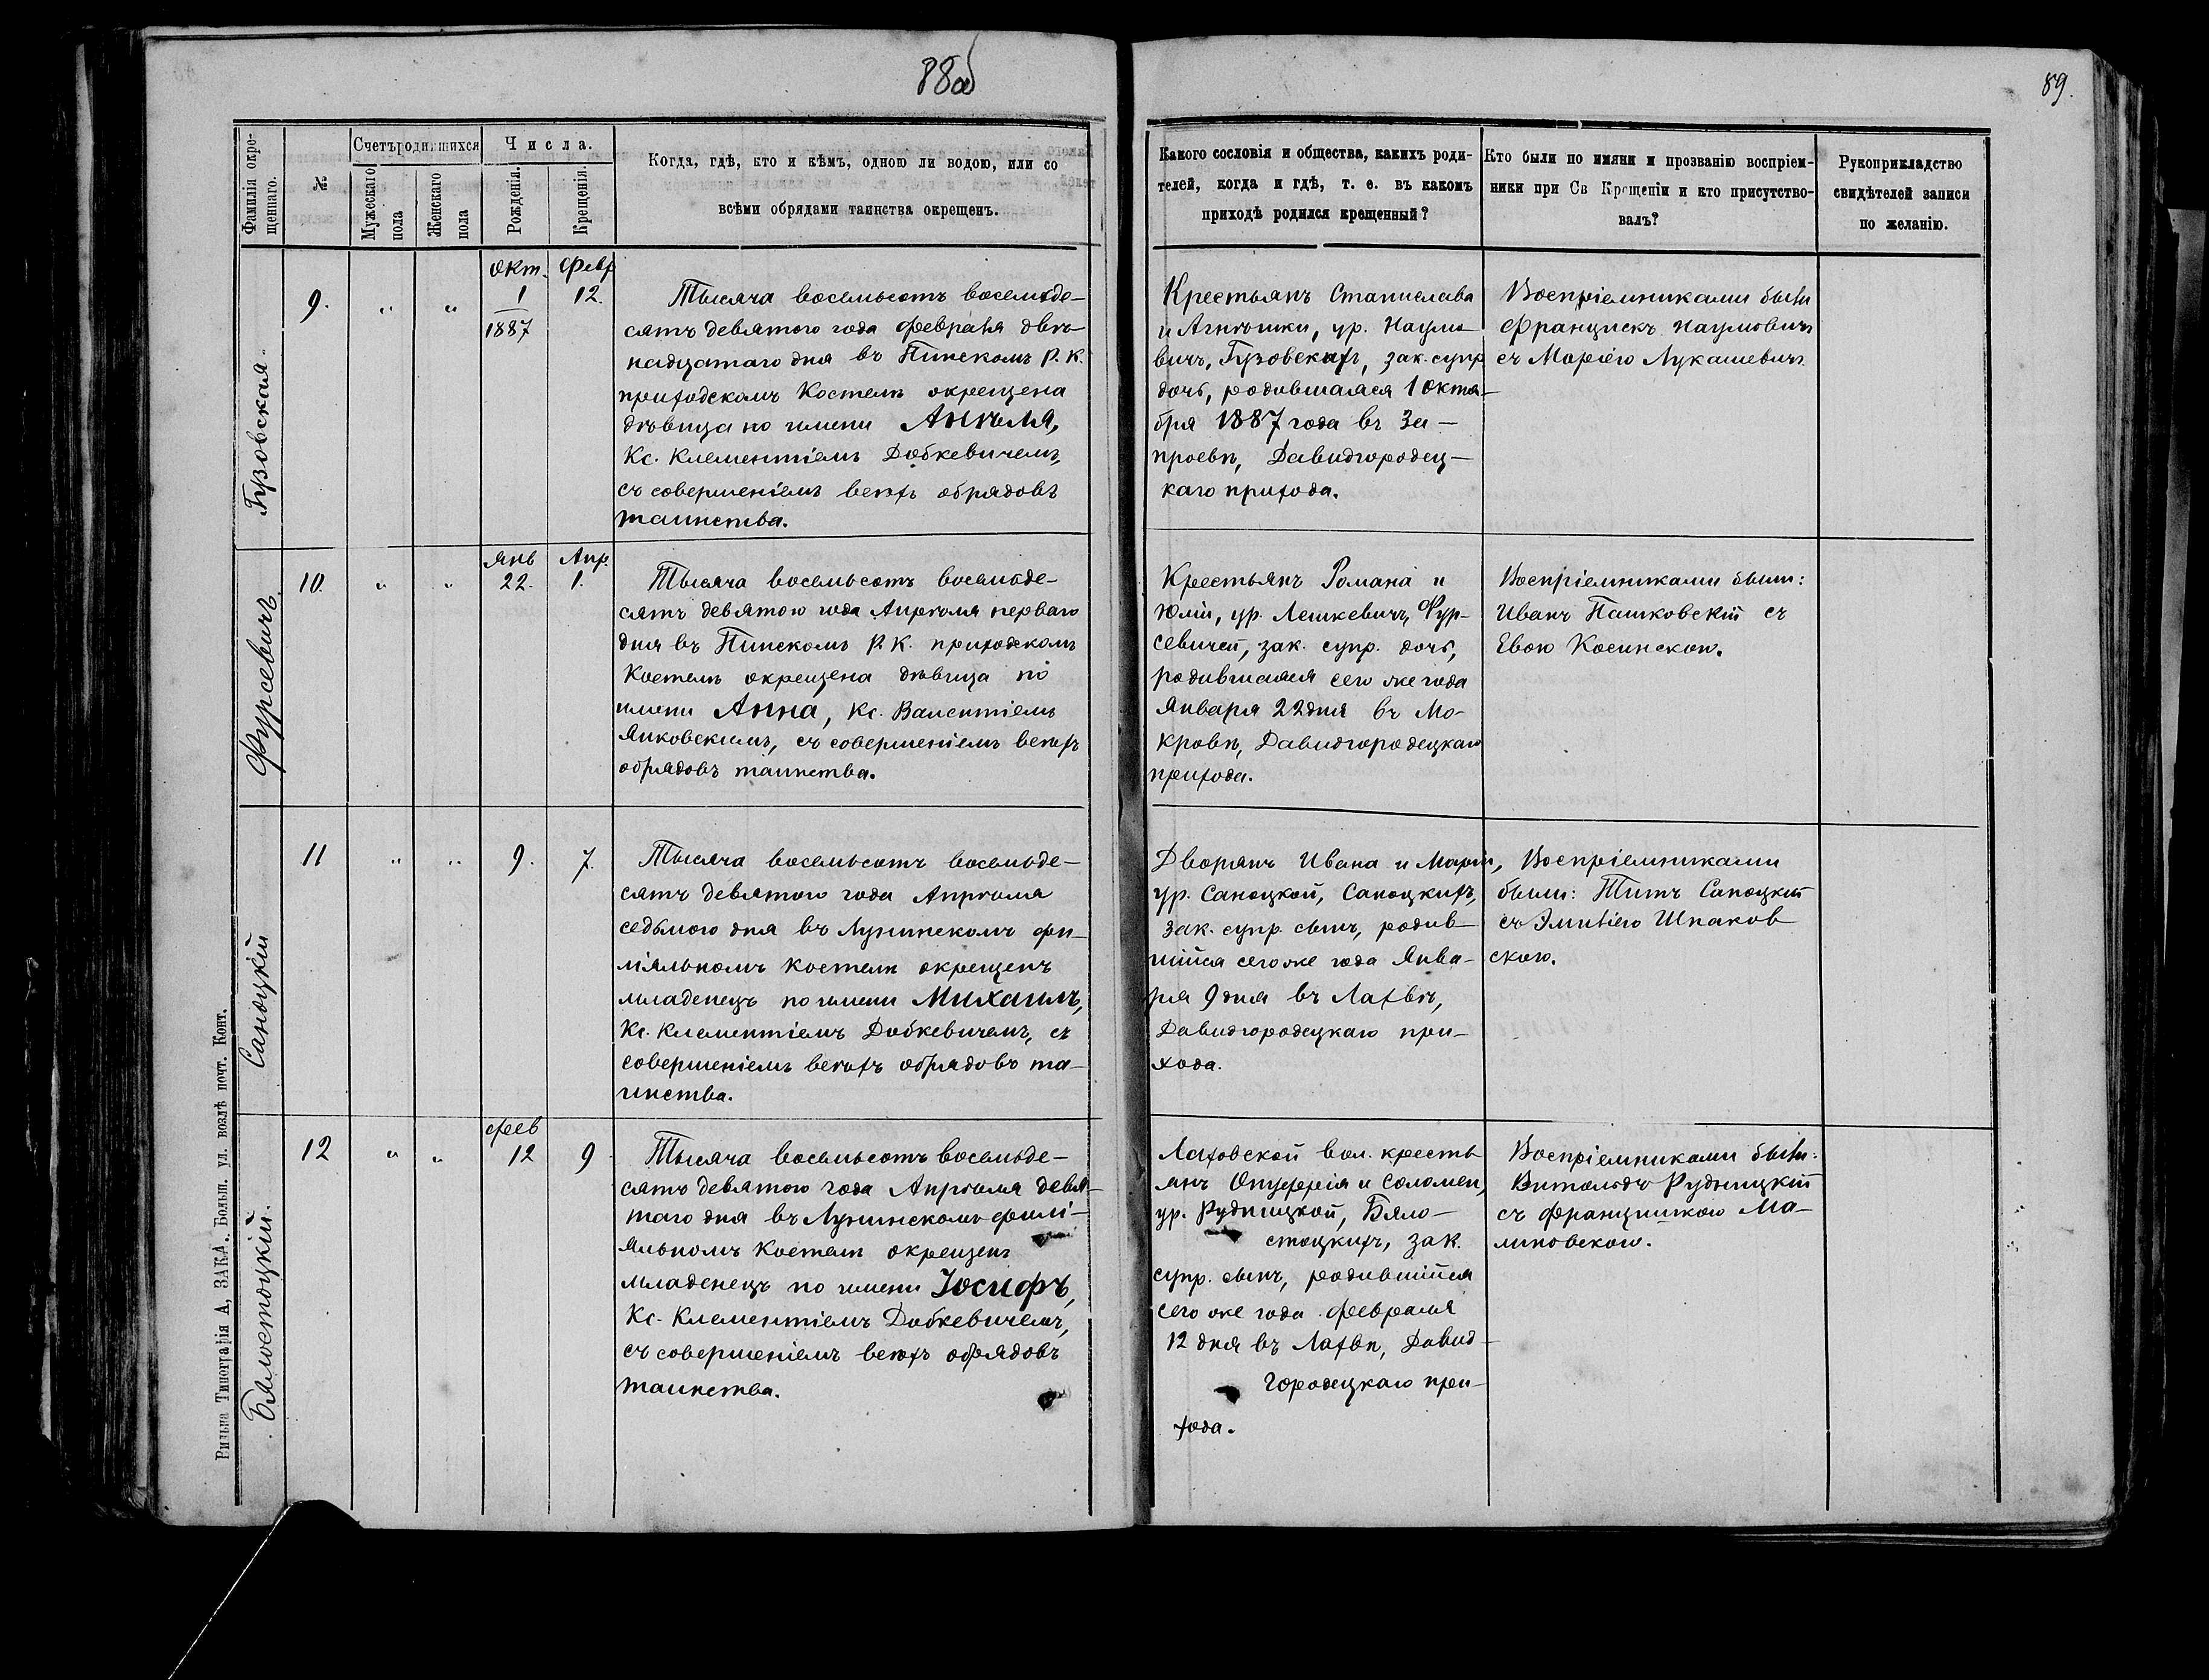 88об
89.
Фамилія окре-
щеннаго.
№
Счетъ родившихся
Мужескаго
пола
Женскаго
пола
Числа.
Рожденія.
Крещенія.
Когда, гдѣ, кто и кѣмъ, одною ли водою, или со
всѣми обрядами таинства окрещенъ.
Какого сословія и общества, какихъ роди-
телей, когда и гдѣ, т. е. въ какомъ
приходѣ родился крещенный?
Кто были по имяни и прозванію воспріем-
ники при Св Крещеніи и кто присутство-
валъ?
Рукоприкладство
свидѣтелей записи
по желанію.
Гузовская.
9.
"
"
Окт.
1
1887
Февр
12.
Тысяча восемьсотъ восемьде-
сятъ девятого года Февраля двѣ-
надцатаго дня въ Пинскомъ Р. К.
приходскомъ Костелѣ окрещена
дѣвица по имени Анѣля,
Кс. Клементіемъ Добкевичемъ,
съ совершеніемъ всѣхъ обрядовъ
таинства.
Крестьянъ Станислава
и Агнѣшки, ур. Наумо-
вичъ, Гузовскихъ, зак. супр
дочь, родившаяся 1 Октя-
бря 1887 года въ За-
просвѣ, Давидгородец-
каго прихода.
Воспріемниками были
Францискъ Наумовичъ
съ Маріею Лукашевичъ.
Фурсевичъ
10.
"
"
Янв
22.
Апр.
1.
Тысяча восемьсотъ восемьде-
сятъ девятого года Апрѣля перваго
дня въ Пинскомъ Р. К. приходскомъ
Костелѣ окрещена дѣвица по
имени Анна, Кс. Валентіемъ
Янковскимъ, съ совершеніемъ всѣхъ
обрядовъ таинства.
Крестьянъ Романа и
Юліи, ур. Лешкевичъ, Фур-
севичей, зак. супр. дочь,
родившаяся сего же года
Января 22 дня въ Мо-
кровѣ, Давидгородецкаго
прихода.
Воспріемниками были:
Иванъ Пашковскій съ
Евою Косинскою.
Саноцкій
11
"
"
9.
7.
Тысяча восемьсотъ восемьде-
сятъ девятого года Апрѣля
седьмого дня въ Лунинскомъ фи-
ліяльномъ Костелѣ окрещенъ
младенецъ по имени Михаилъ,
Кс. Клементіемъ Добкевичемъ, съ
совершеніемъ всѣхъ обрядовъ та-
инства.
Дворянъ Ивана и Маріи,
ур. Саноцкой, Саноцкихъ,
зак. супр. сынъ, родив-
шійся сего же года Янва-
ря 9 дня въ Лахвѣ,
Давидгородецкаго при-
хода.
Воспріемниками
были: Титъ Саноцкій
съ Эмиліею Шпаков
скою.
Бялостоцкій.
12
"
"
Фев
12
9
Тысяча восемьсотъ восемьде-
сятъ девятого года Апрѣля девя-
таго дня въ Лунинскомъ филі-
яльномъ Костелѣ окрещенъ
младенецъ по имени Іосифъ,
Кс. Клементіемъ Добкевичемъ,
съ совершеніемъ всѣхъ обрядовъ
таинства.
Лаховской вол. кресть
янъ Онуфрія и Соломеи,
ур. Рудницкой, Бяло-
стоцкихъ, зак.
супр. сынъ, родившійся
сего же года февраля
12 дня въ Лахвѣ, Давид-
городецкаго при-
хода.
Воспріемниками были:
Витольдъ Рудницкій
съ Францишкою Ма-
линовскою.
Вильна Типографія А, ЗАКА. Больш. ул. возлѣ почт. Конт.